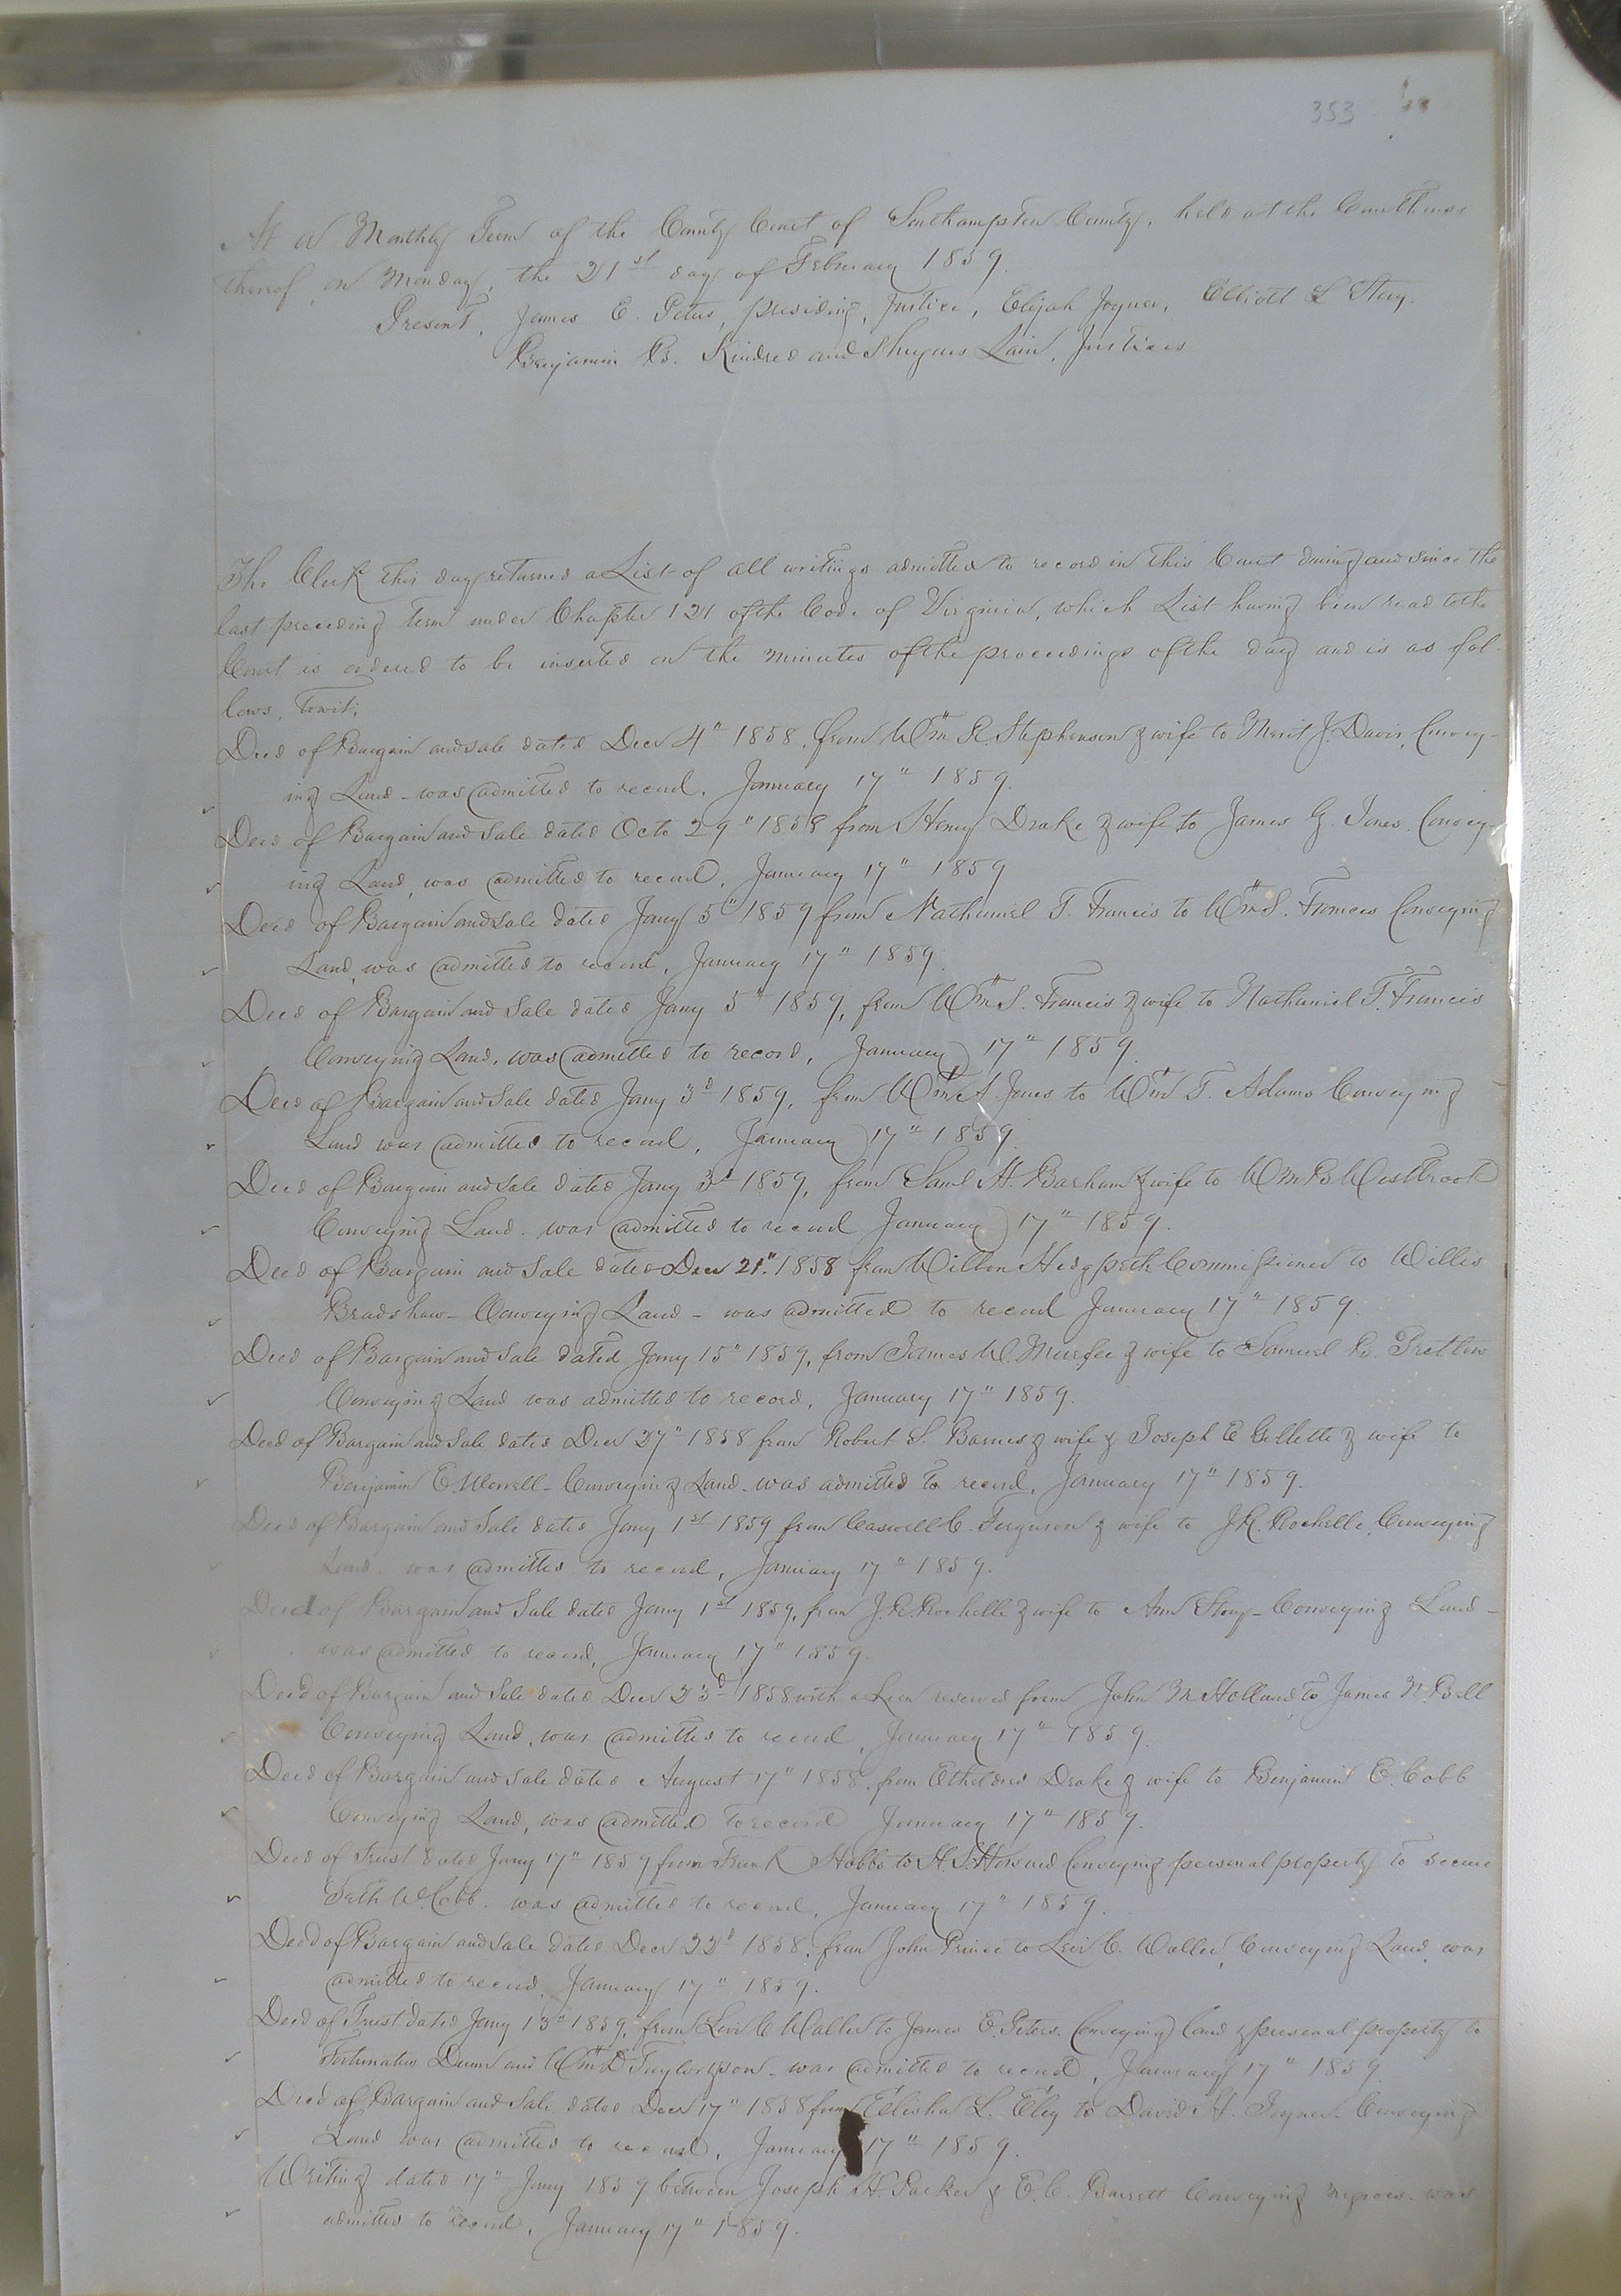 353
At a Monthly Term of the County Court of Southampton County, held at the Courthouse
thereof, on Monday, the 21st day of February 1859.
Present, James E. Peters, presiding, Justice, Elijah Joyner, Elliott L
Benjamin B. Kindred and Lain, Justices
The Clerk this day returned a List of all writings admitted to record in this Court during and since the
last preceding term under Chapter 121 of the Code of Virginia, which List having been read to the
Court is ordered to be inserted on the minutes of the proceedings of the day and is as fol-
lows, Towit;
Deed of Bargain and sale dated Decr 4" 1858, from Wm R. Stephenson & wife to Merit J. Davis, Convey-
ing Land - was admitted to record, January 17" 1859.
Deed of Bargain and Sale dated Octo 29" 1858 from Henry Drake & wife to James G. Jones. Convey-
ing Land, was admitted to record, January 17" 1859
Deed of Bargain and Sale dated Jany 5" 1859 from Nathaniel T. Francis to Wm S. Francis Conveying
Land, was admitted to record, January 17" 1859.
Deed of Bargain and Sale dated Jany 5" 1859, from Wm S. Francis & wife to Nathaniel T. Francis
Conveying Land, was admitted to record, January 17" 1859.
Deed of Bargain and Sale dated Jany 3d 1859, from Wm A. Jones to Wm T. Adams Conveying
Land was admitted to record, January 17" 1859.
Deed of Bargain and Sale dated Jany 3d 1859, from Saml H. Barham & wife to Wm B Westbrook
Conveying Land. was admitted to record January 17" 1859.
Deed of Bargain and Sale dated Decr 21" 1858 from Wilton Hedgpeth Commissioner to Willis
Bradshaw - Conveying Land - was admitted to record January 17" 1859.
Deed of Bargain and Sale dated Jany 15" 1859, from James W. Murfee & wife to Samuel B. Pretlow
Conveying Land was admitted to record, January 17" 1859.
Deed of Bargain and Sale dated Decr 27" 1858 from Robert S. Barnes & wife & Joseph E Gillette & wife to
Benjamin E. Worrell - Conveying Land - was admitted to record, January 17" 1859.
Deed of Bargain and Sale dated Jany 1st 1859 from Caswell C. Ferguson & wife to J.R. Rochelle, Conveying
Land. was admitted to record, January 17" 1859.
Deed of Bargain and Sale dated Jany 1st 1859, from J.R. Rochelle & wife to Ann - Conveying Land -
was admitted to record, January 17" 1859.
Deed of Bargain and Sale dated Decr 23d 1858 with a Lien reserved from John M Holland, to James N. Bell
Conveying Land, was admitted to record, January 17" 1859.
Deed of Bargain and Sale dated August 17" 1858, from Etheldred Drake & wife to Benjamin E. Cobb
Conveying Land, was admitted to record January 17" 1859.
Deed of Trust dated Jany 17" 1859 from Frank Hobbs to H. S. Howard Conveying personal property to secure
W. Cobb. was admitted to record, January 17" 1859.
Deed of Bargain and Sale dated Decr 22d 1858, from John Prince to Levi C. Waller, Conveying Land, was
admitted to record, January 17" 1859.
Deed of Trust dated Jany 13" 1859, from Levi C Waller to James E. Peters. Conveying land & personal property to
Fortunatus Dunn and Wm D Taylor & son - was admitted to record, January 17" 1859.
Deed of Bargain and Sale dated Decr 17" 1858 from Elisha L. Eley to David H. Joyner. Conveying
Land was admitted to record, January 17" 1859.
Writing dated 17" Jany 1859 between Joseph H. Parker & E. C. Barrett Conveying negroes. was
admitted to record, January 17" 1859.